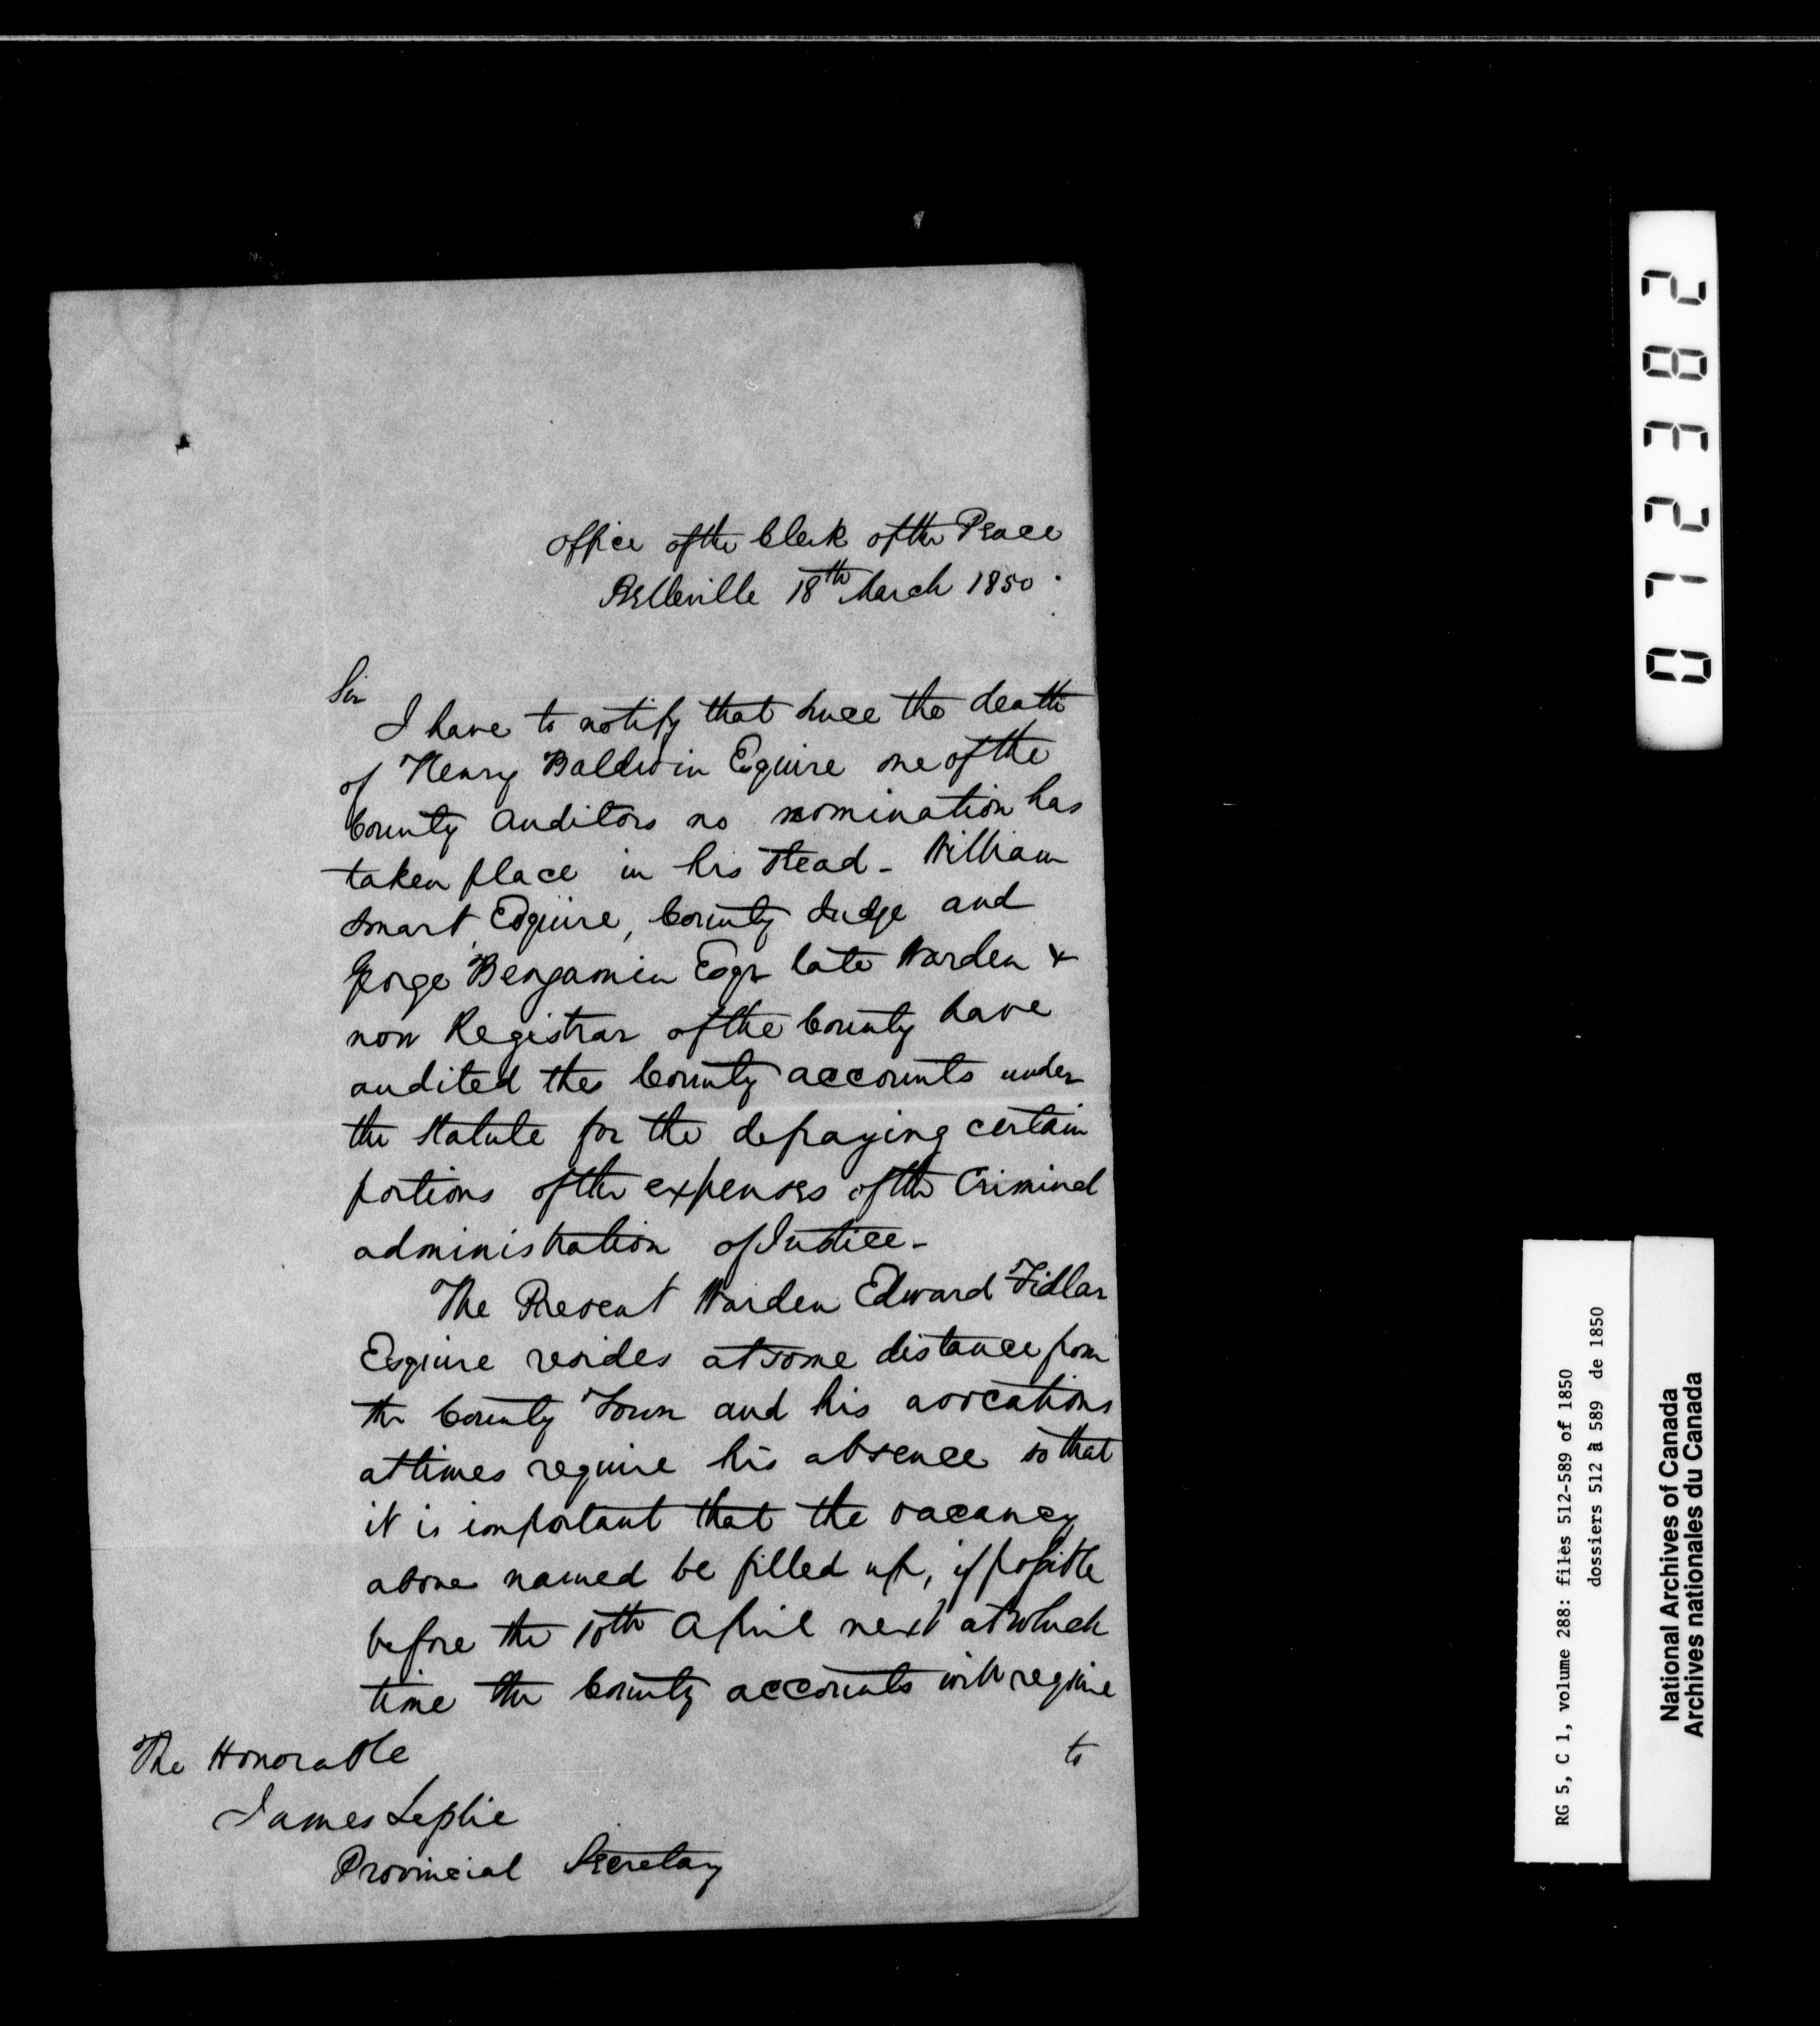 Office of the Clerk of the Peace
Belleville 18th March 1850.
Sir
I have to notify that since the death
of Henry Baldwin Esquire one of the
County Auditors no nomination has
taken place in his stead - William
Smart Esquire, County Judge and
George Benjamin Esqr late Warden &
now Registrar of the County have
audited the County accounts under
the Statute for the defraying certain
portions of the expenses of the Criminal
administration of Justice -
The Present Warden Edward Fidlar
Esquire resides at some distance from
the County Town and his avocations
at times require his absence so that
it is important that the vacancy
above named be filled up, if possible
before the 10th April next at which
time the County accounts will require
to
The Honorable
James Leslie
Provincial Secretary
283270
RG 5, C 1, volume 288: files 512-589 of 1850
dossiers 512 à 589 de 1850
National Archives of Canada
Archives nationales du Canada